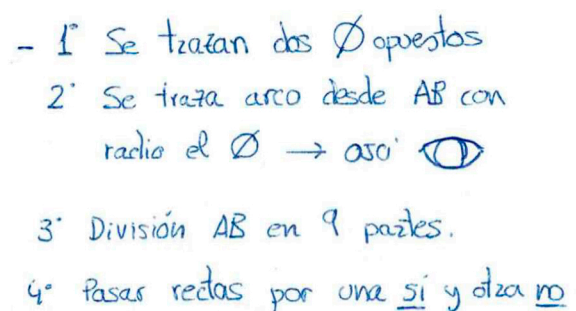 - 1º Se trazan dos Ø opuestos
2º Se traza arco desde AB con
radio el Ø → así
3º División AB en 9 partes.
4º Pasar rectas por una sí y otra no